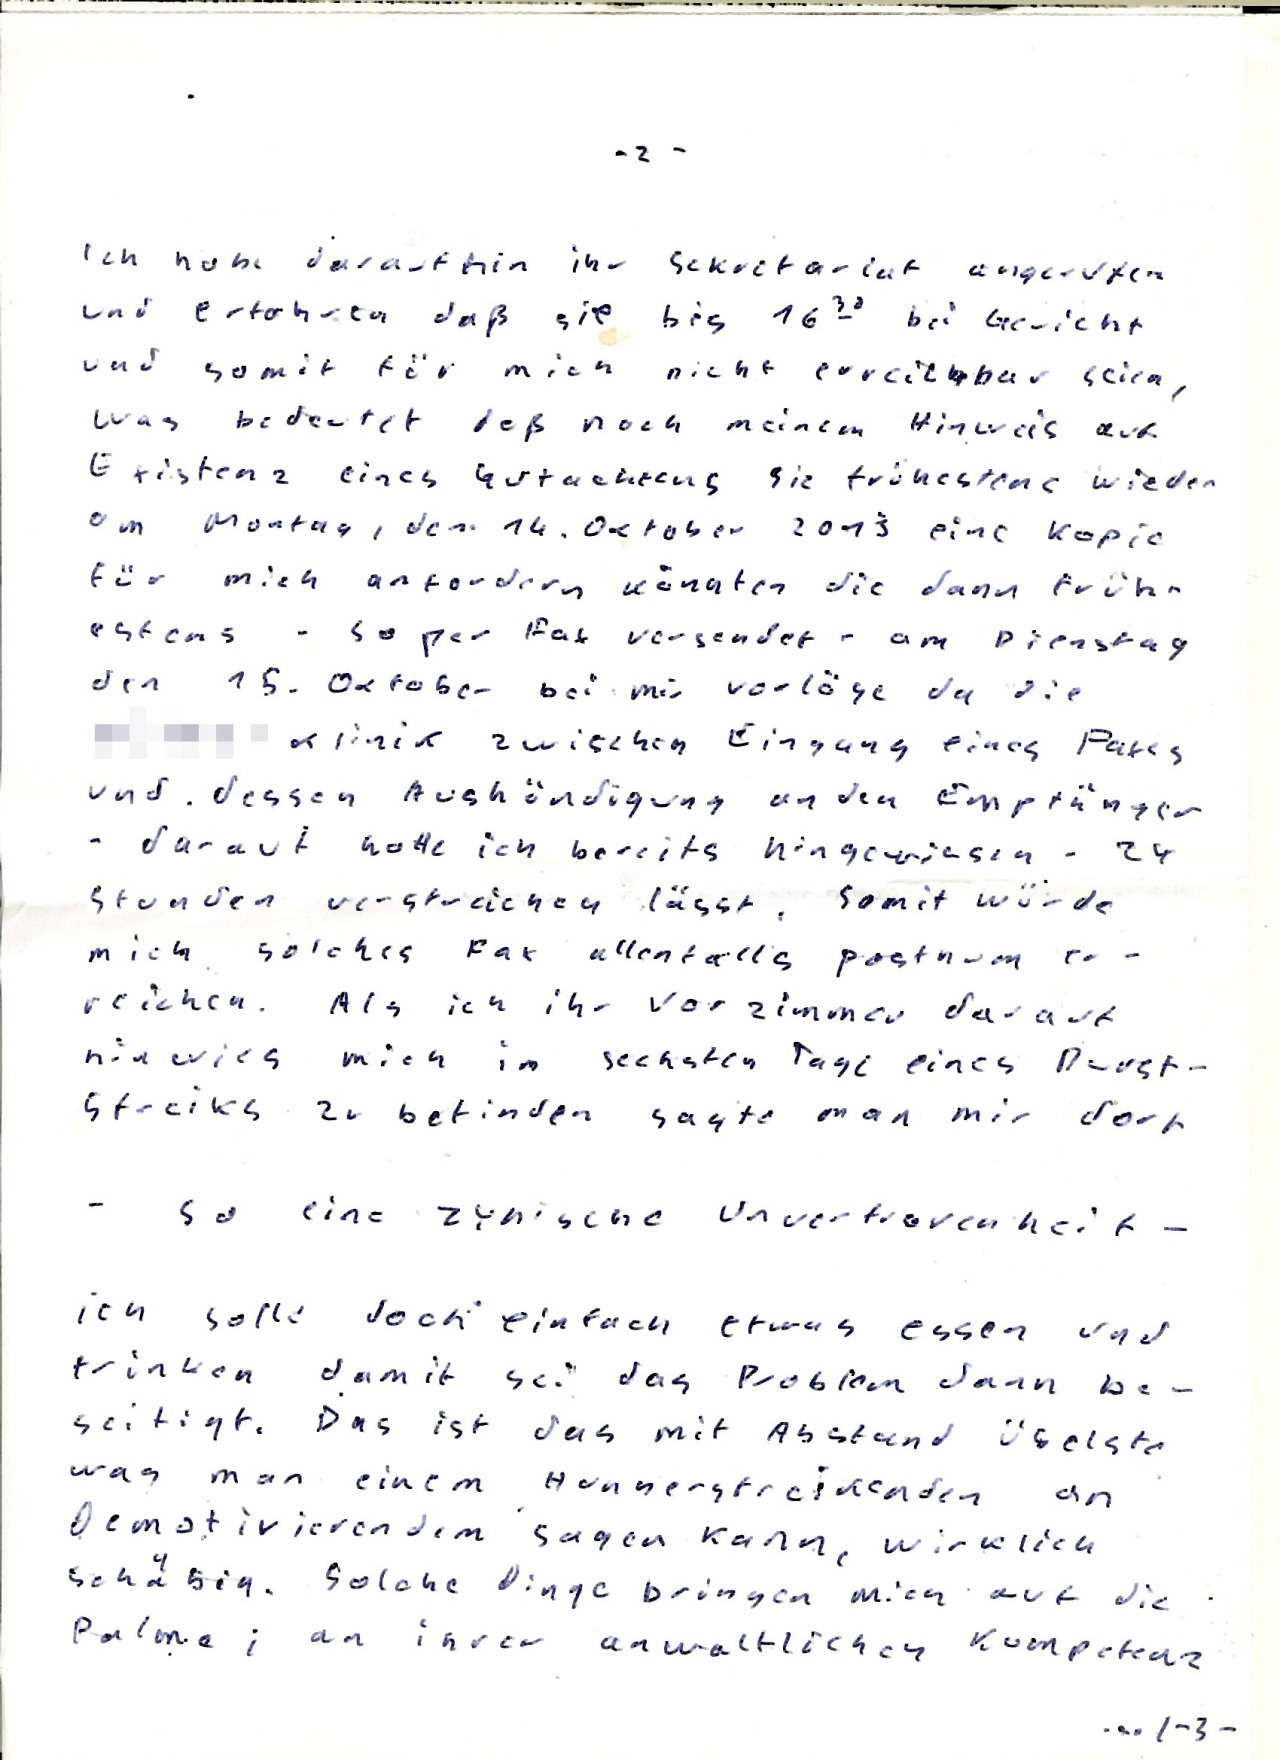 - 2 -
Ich habe daraufhin ihr Sekretariat angerufen
und erfahren daß sie bis 16³⁰ bei Gericht
und somit für mich nicht erreichbar seien,
was bedeutet daß nach meinem Hinweis auf
Existenz eines Gutachtens sie frühestens wieder
am Montag, den 14. Oktober 2013 eine Kopie
für mich anfordern könnten die dann früh-
estens - so per Fax versendet - am Dienstag
den 15. Oktober bei mir vorläge da die
klinik zwischen Eingang eines Faxes
und dessen Aushändigung an den Empfänger
- darauf hatte ich bereits hingewiesen - 24
Stunden verstreichen lässt. Somit würde
mich solches Fax allenfalls posthum er-
reichen. Als ich ihr Vorzimmer darauf
hinwies mich im sechsten Tage eines Durst-
streiks zu befinden sagte man mir dort
- so eine zynische Unverfrorenheit -
ich solle doch einfach etwas essen und
trinken damit sei das Problem dann be-
seitigt. Das ist das mit Abstand übelste
was man einem Hungerstreikenden an
Demotivierendem sagen kann, wirklich
schäbig. Solche Dinge bringen mich auf die
Palme; an ihrer anwaltlichen Kompetenz
... /-3-